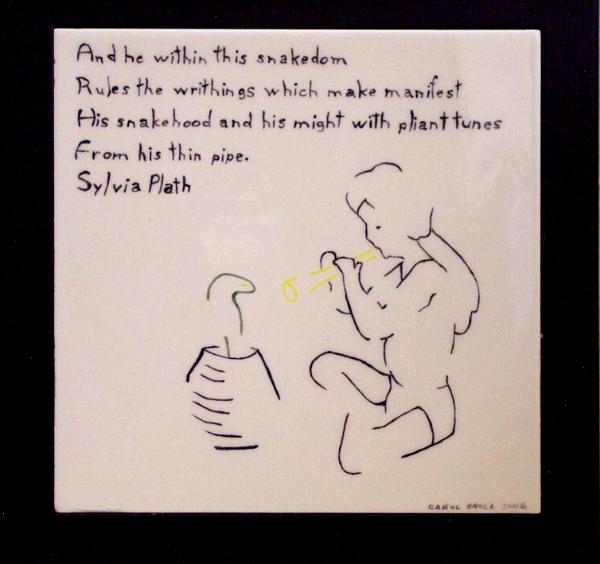 And he within this snakedom
Rules the writhings which make manifest
His snakehood and his might with pliant tunes
From his thin pipe.
Sylvia Plath
CAROL